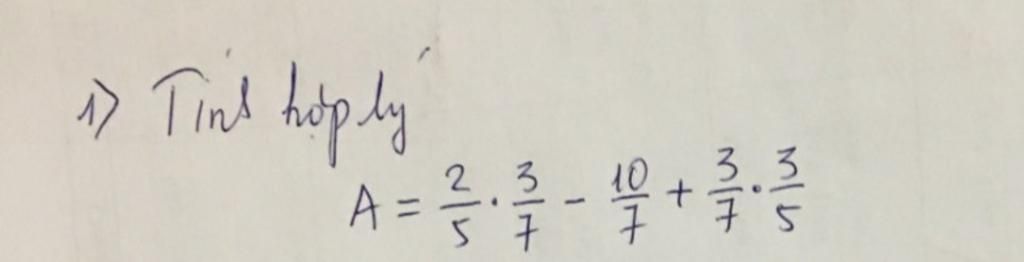 1) Tính hợp lý
A = 2/5 . 3/7 - 10/7 + 3/7 . 3/5